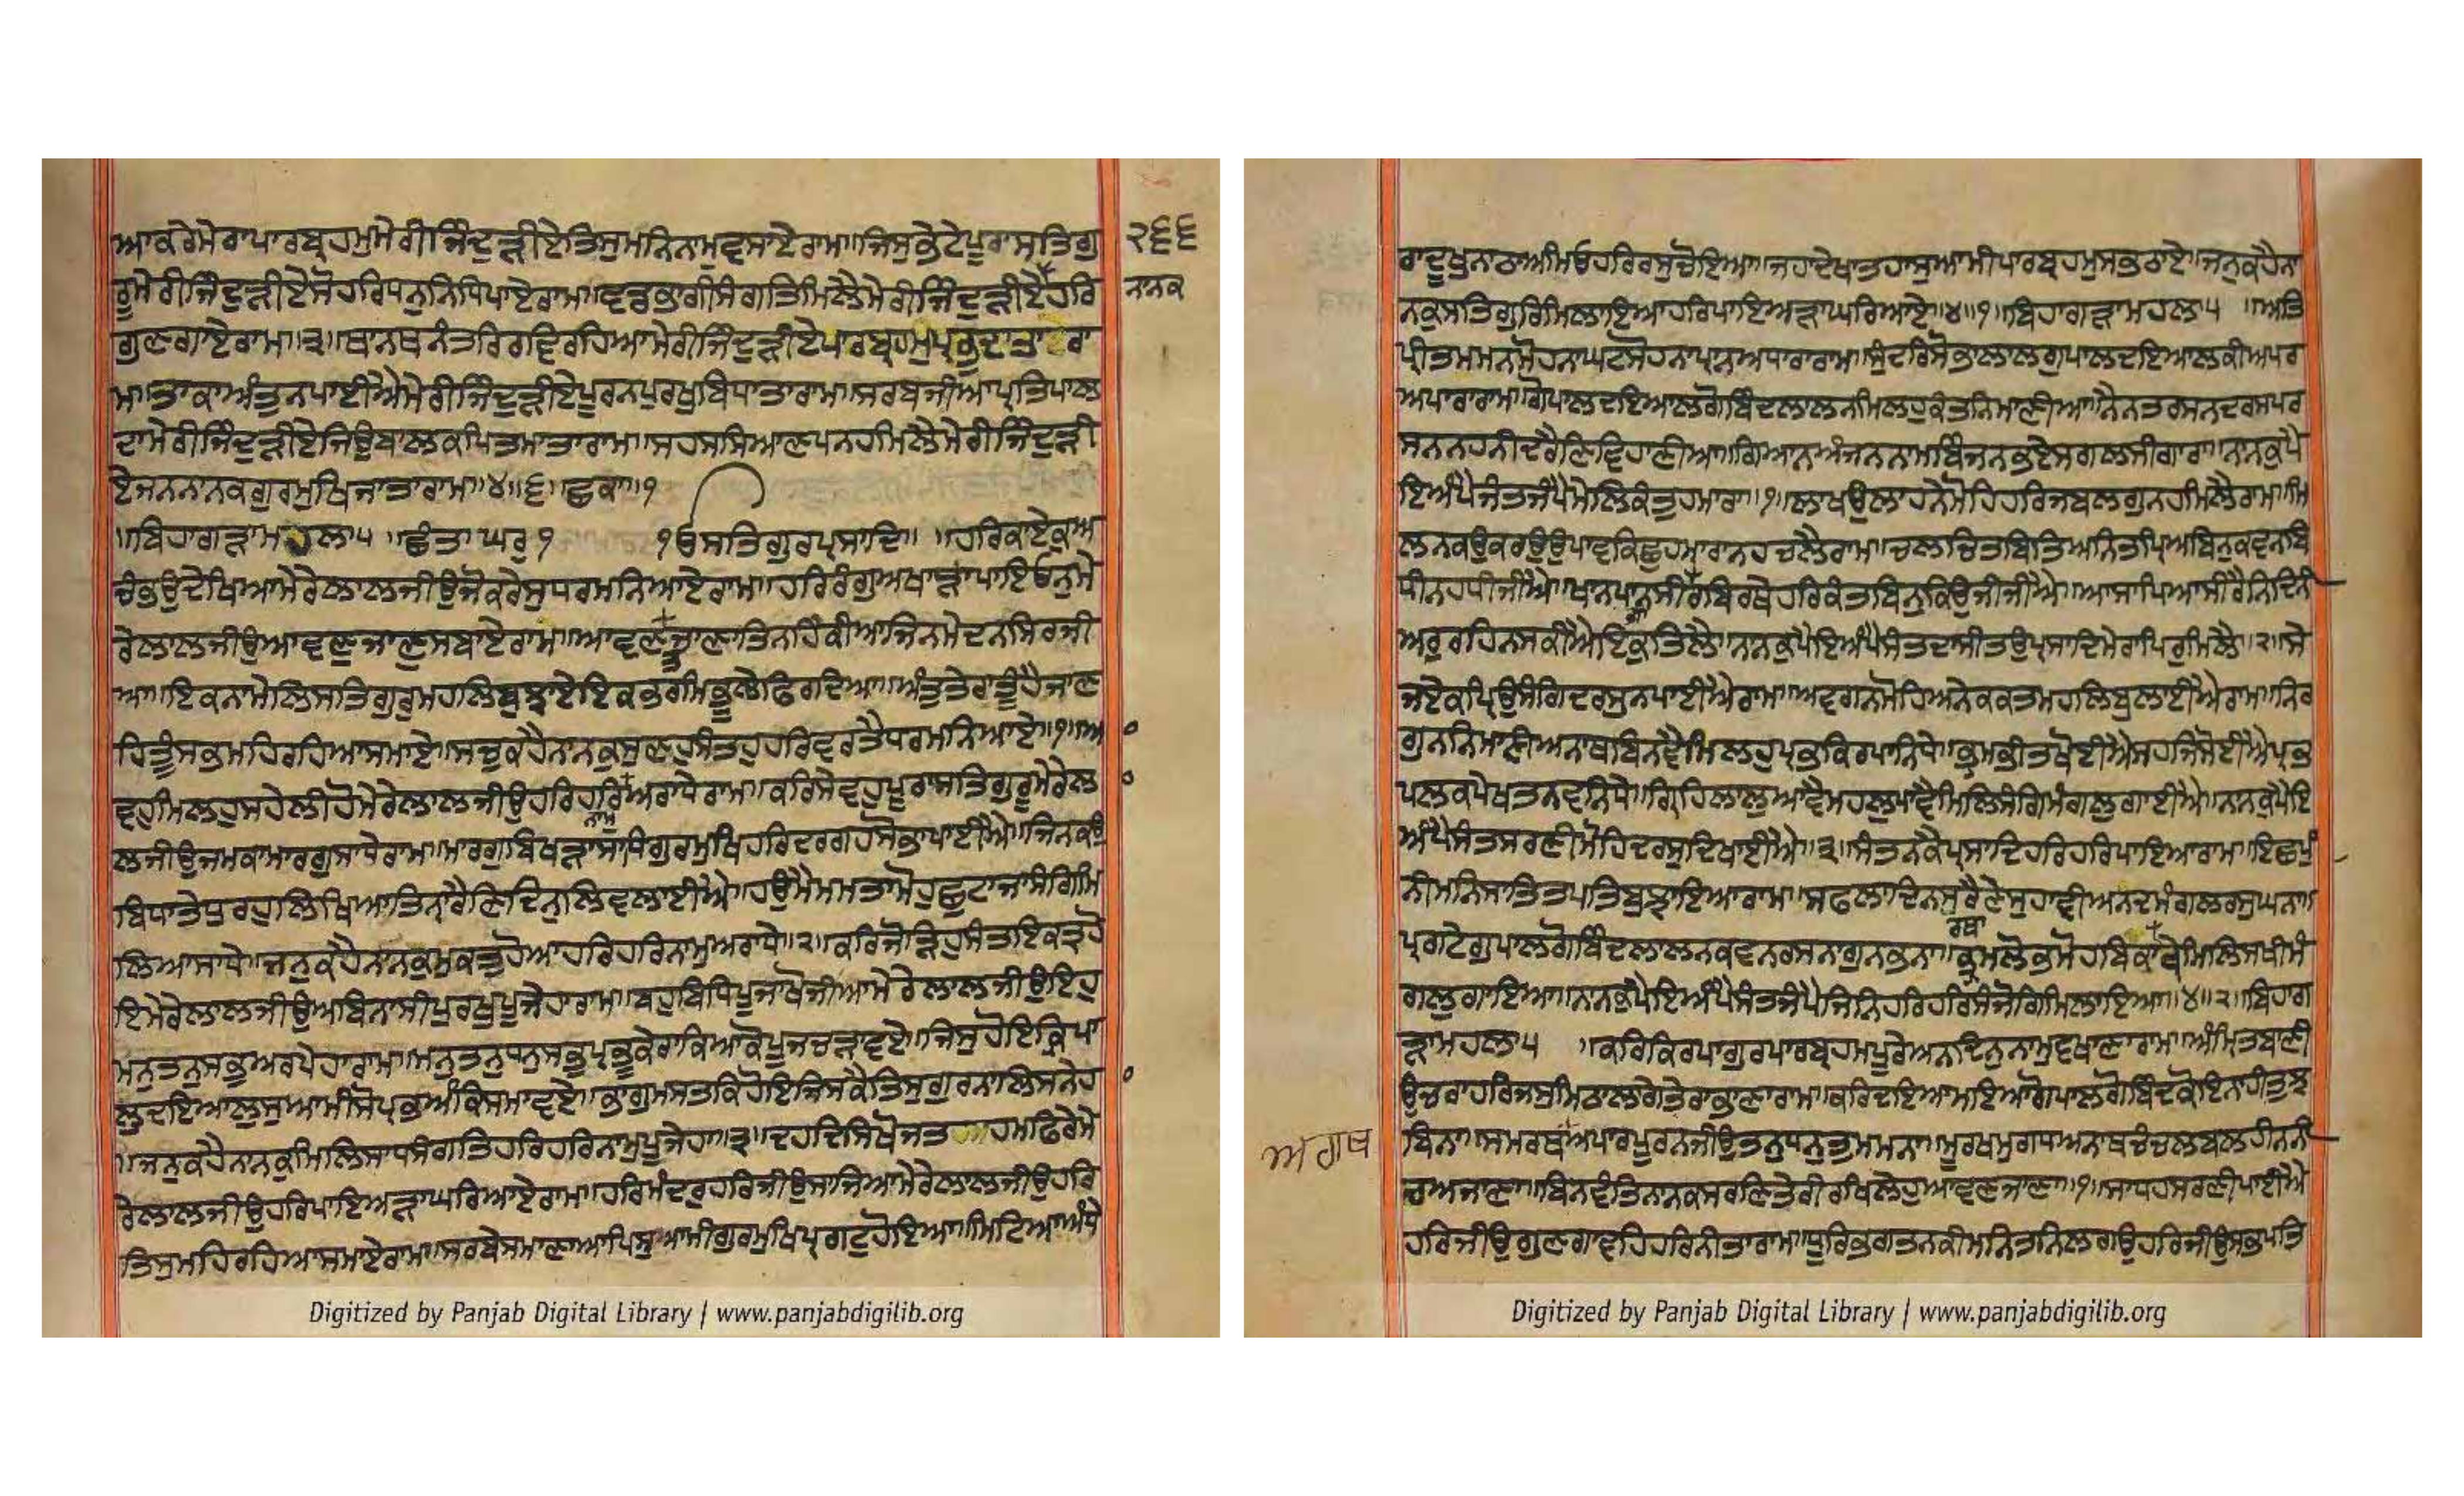 ਆਕਰੇਮੇਰਾਪਾਰਬ੍ਰਹਮੁਮੇਰੀਜਿੰਦੁੜੀਏਤਿਸੁਮਨਿਨਾਮੁਵਸਾਏਰਾਮ॥ਜਿਸੁਭੇਟੇਪੂਰਾਸਤਿਗੁ
੨੬੬
ਰੂਮੇਰੀਜਿੰਦੁੜੀਏਸੋਹਰਿਧਨੁਨਿਧਿਪਾਏਰਾਮ॥ਵਡਭਾਗੀਸੰਗਤਿਮਿਲੈਮੇਰੀਜਿੰਦੁੜੀਏਹਰਿ
ਨਾਨਕ
ਗੁਣਗਾਏਰਾਮ॥੩॥ਥਾਨਥਨੰਤਰਿਰਵਿਰਹਿਆਮੇਰੀਜਿੰਦੁੜੀਏਪਾਰਬ੍ਰਹਮੁਪ੍ਰਭੁਦਾਤਾਰਾ
ਮ॥ਤਾਕਾਅੰਤੁਨਪਾਈਐਮੇਰੀਜਿੰਦੁੜੀਏਪੂਰਨਪੁਰਖੁਬਿਧਾਤਾਰਾਮ॥ਸਰਬਜੀਆਪ੍ਰਤਿਪਾਲ
ਦਾਮੇਰੀਜਿੰਦੁੜੀਏਜਿਉਬਾਲਕਪਿਤਮਾਤਾਰਾਮ॥ਸਹਸਸਿਆਣਪਨਹਮਿਲੈਮੇਰੀਜਿੰਦੁੜੀ
ਏਜਨਨਾਨਕਗੁਰਮੁਖਿਜਾਤਾਰਾਮ॥੪॥੬॥ਛਕਾ॥੧
॥ਬਿਹਾਗੜਾਮਹਲਾ੫ ॥ਛੰਤਾ ਘਰੁ੧ ੧ਓਸਤਿਗੁਰਪ੍ਰਸਾਦਿ॥ ॥ਹਰਿਕਾਏਕੁਅ
ਚੰਭਉਦੇਖਿਆਮੇਰੇਲਾਲਜੀਉਜੋਕਰੇਸੁਧਰਮਨਿਆਏਰਾਮ॥ਹਰਿਰੰਗੁਅਖਾੜਾਪਾਇਓਨੁਮੇ
ਰੇਲਾਲਜੀਉਆਵਣੁਜਾਣੁਸਬਾਏਰਾਮ॥ਆਵਣਜਾਣਾਤਿਨਹਿਕੀਆਜਿਨਮੇਦਨਸਿਰਜੀ
ਆ॥ਇਕਨਾਮੇਲਿਸਤਿਗੁਰੁਮਹਲਿਬੁਲਾਏਇਕਭਰਮਿਭੂਲੇਫਿਰਦਿਆ॥ਅੰਤੁਤੇਰਾਤੂੰਹੈਜਾਣ
ਹਿਤੂੰਸਭਮਹਿਰਹਿਆਸਮਾਏ॥ਸਚੁਕਹੈਨਾਨਕੁਸੁਣਹੁਸੰਤਹੁਹਰਿਵਰਤੈਧਰਮਨਿਆਏ॥੧॥ਆ
ਵਹੁਮਿਲਹੁਸਹੇਲੀਹੋਮੇਰੇਲਾਲਜੀਉਹਰਿਹਰਿਅਰਾਧੇਰਾਮ॥ਕਰਿਸੇਵਹੁਪੂਰਾਸਤਿਗੁਰੂਮੇਰੇਲ
ਨਾਮੁ
ਲਜੀਉਜਮਕਾਮਾਰਗੁਸਾਧੇਰਾਮ॥ਮਾਰਗੁਬਿਖੜਾਸਾਧਿਗੁਰਮੁਖਿਹਰਿਦਰਗਹਸੋਭਾਪਾਈਐ॥ਜਿਨਕਉ
ਬਿਧਾਤੇਧੁਰਹੁਲਿਖਿਆਤਿਨ੍ਹਾਰੈਣਿਦਿਨੁਲਿਵਲਾਈਐ॥ਹਉਮੈਮਮਤਾਮੋਹੁਛੁਟਾਜਾਸੰਗਿਮਿ
ਲਿਆਸਾਧੇ॥ਜਨੁਕਹੈਨਾਨਕੁਮੁਕਤੁਹੋਆਹਰਿਹਰਿਨਾਮੁਅਰਾਧੇ॥੨॥ਕਰਿਜੋੜਿਹੁਸੰਤਇਕਤ੍ਰਹੋ
ਇਮੇਰੇਲਾਲਜੀਉਅਬਿਨਾਸੀਪੁਰਖੁਪੂਜੇਹਾਰਾਮ॥ਬਹੁਬਿਧਿਪੂਜਾਖੋਜੀਆਮੇਰੇਲਾਲਜੀਉਇਹੁ
ਮਨੁਤਨੁਸਭੁਅਰਪੇਹਾਰਾਮ॥ਮਨੁਤਨੁਧਨੁਸਭੁਪ੍ਰਭੂਕੇਰਾਕਿਆਕੋਪੂਜਚੜਾਵਏ॥ਜਿਸੁਹੋਇਕ੍ਰਿਪਾ
ਲੁਦਇਆਲੁਸੁਆਮੀਸੋਪ੍ਰਭਅੰਕਿਸਮਾਵਏ॥ਭਾਗੁਮਸਤਕਿਹੋਇਜਿਸਕੈਤਿਸੁਗੁਰਨਾਲਿਸਨੇਹ
॥ਜਨੁਕਹੈਨਾਨਕੁਮਿਲਿਸਾਧਸੰਗਤਿਹਰਿਹਰਿਨਾਮੁਪੂਜੇਹਾ॥੩॥ਦਹਦਿਸਿਖੋਜਤ ਹਮਫਿਰੇਮੇ
ਰੇਲਾਲਜੀਉਹਰਿਪਾਇਅੜਾਘਰਿਆਏਰਾਮ॥ਹਰਿਮੰਦਰੁਹਰਿਜੀਉਸਾਜਿਆਮੇਰੇਲਾਲਜੀਉਹਰਿ
ਤਿਸੁਮਹਿਰਹਿਆਸਮਾਏਰਾਮ॥ਸਰਬੇਸਮਾਣਾਆਪਿਸੁਆਮੀਗੁਰਮੁਖਿਪ੍ਰਗਟੁਹੋਇਆ॥ਮਿਟਿਆਅੰਧੇ
Digitized by Panjab Digital Library | www.panjabdigilib.org
ਰਾਦੂਖੁਨਾਠਾਅਮਿਉਹਰਿਰਸੁਚੋਇਆ॥ਜਹਾਦੇਖਾਤਹਾਸੁਆਮੀਪਾਰਬ੍ਰਹਮੁਸਭਠਾਏ॥ਜਨੁਕਹੈਨਾ
ਨਕੁਸਤਿਗੁਰਿਮਿਲਾਇਆਹਰਿਪਾਇਅੜਾਘਰਿਆਏ॥੪॥੧॥ਬਿਹਾਗੜਾਮਹਲਾ੫ ॥ਅਤਿ
ਪ੍ਰੀਤਮਮਨਮੋਹਨਾਘਟਸੋਹਨਾਪ੍ਰਾਨਅਧਾਰਾਰਾਮ॥ਸੁੰਦਰਿਸੋਭਾਲਾਲਗੁਪਾਲਦਇਆਲਕੀਅਪਰ
ਅਪਾਰਾਰਾਮ॥ਗੋਪਾਲਦਇਆਲਗੋਬਿੰਦਲਾਲਨਮਿਲਹੁਕੰਤਨਿਮਾਣੀਆ॥ਨੈਨਤਰਸਨਦਰਸਪਰ
ਸਨਨਹਨੀਦਰੈਣਿਵਿਹਾਣੀਆ॥ਗਿਆਨਅੰਜਨਨਾਮਬਿੰਜਨਭਏਸਗਲਸੀਗਾਰਾ॥ਨਾਨਕੁਪੈ
ਇਅੰਪੈਸੰਤਜੰਪੈਮੇਲਿਕੰਤੁਹਮਾਰਾ॥੧॥ਲਾਖਉਲਾਹਨੇਮੋਹਿਹਰਿਜਬਲਗੁਨਹਮਿਲੈਰਾਮ॥ਮਿ
ਲਨਕਉਕਰਉਉਪਾਵਕਿਛੁਹਮਾਰਾਨਹਚਲੈਰਾਮ॥ਚਲਚਿਤਬਿਤਿਅਨਿਤਪ੍ਰਿਅਬਿਨੁਕਵਨਬਿ
ਧੀਨਹਧੀਜੀਐ॥ਖਾਨਪਾਨਸੀਗਰਬਿਰਥੇਹਰਿਕੰਤਬਿਨੁਕਿਉਜੀਜੀਐ॥ਆਸਾਪਿਆਸੀਰੈਨਿਦਿਨੀ
ਅਰੁਰਹਿਨਸਕੀਐਇਕੁਤਿਲੈ॥ਨਾਨਕੁਪੈਇਅੰਪੈਸੰਤਦਾਸੀਤਉਪ੍ਰਸਾਦਿਮੇਰਾਪਿਰੁਮਿਲੈ॥੨॥ਸੇ
ਜਏਕਪ੍ਰਿਉਸੰਗਿਦਰਸੁਨਪਾਈਐਰਾਮ॥ਅਵਗਨਮੋਹਿਅਨੇਕਕਤਮਹਲਿਬੁਲਾਈਐਰਾਮ॥ਨਿਰ
ਗੁਨਨਿਮਾਣੀਅਨਾਥਬਿਨਵੈਮਿਲਹੁਪ੍ਰਭੁਕਿਰਪਾਨਿਧੇ॥ਭ੍ਰਮਭੀਤਖੋਈਐਸਹਜਿਸੋਈਐਪ੍ਰਭ
ਪਲਕਪੇਖਤਨਵਨਿਧੇ॥ਗ੍ਰਿਹਿਲਾਲੁਆਵੈਮਹਲੁਪਾਵੈਮਿਲਿਸੰਗਿਮੰਗਲੁਗਾਈਐ॥ਨਾਨਕੁਪੈਇ
ਅੰਪੈਸੰਤਸਰਣੀਮੋਹਿਦਰਸੁਦਿਖਾਈਐ॥੩॥ਸੰਤਨਕੈਪ੍ਰਸਾਦਿਹਰਿਹਰਿਪਾਇਆਰਾਮ॥ਇਛਪੁੰ
ਨੀਮਨਿਸਾਂਤਿਤਪਤਿਬੁਝਾਇਆਰਾਮ॥ਸਫਲਾਦਿਨਸੁਰੈਣੇਸੁਹਾਵੀਅਨਦਮੰਗਲਰਸੁਘਨਾ॥
ਪ੍ਰਗਟੇਗੁਪਾਲਗੋਬਿੰਦਲਾਲਨਕਵਨਰਸਨਾਗੁਨਭਨਾ॥ਭ੍ਰਮਲੋਭਮੋਹਬਿਕਾਰੇਮਿਲਿਸਖੀਮੰ
ਗਲੁਗਾਇਆ॥ਨਾਨਕੁਪੈਇਅੰਪੈਸੰਤਜੰਪੈਜਿਨਿਹਰਿਹਰਿਸੰਜੋਗਿਮਿਲਾਇਆ॥੪॥੨॥ਬਿਹਾਗ
ੜਾਮਹਲਾ੫ ॥ਕਰਿਕਿਰਪਾਗੁਰਪਾਰਬ੍ਰਹਮਪੂਰੇਅਨਦਿਨੁਨਾਮੁਵਖਾਣਾਰਾਮ॥ਅੰਮ੍ਰਿਤਬਾਣੀ
ਉਚਰਾਹਰਿਜਸੁਮਿਠਾਲਾਗੈਤੇਰਾਭਾਣਾਰਾਮ॥ਕਰਿਦਇਆਮਇਆਗੋਪਾਲਗੋਬਿੰਦਕੋਇਨਾਹੀਤੁਝ
ਬਿਨਾ॥ਸਮਰਥਅਪਾਰਪੂਰਨਜੀਉਤਨੁਧਨੁਤੁਮਮਨਾ॥ਮੂਰਖਮੁਗਧਅਨਾਥਚੰਚਲਬਲਹੀਨਨੀ
ਅਗਥ
ਚਅਜਾਣਾ॥ਬਿਨਵੰਤਿਨਾਨਕਸਰਣਿਤੇਰੀਰਖਿਲੇਹੁਆਵਣਜਾਣਾ॥੧॥ਸਾਧਹਸਰਣੀਪਾਈਐ
ਹਰਿਜੀਉਗੁਣਗਾਵਹਿਹਰਿਨੀਤਾਰਾਮ॥ਧੂਰਿਭਗਤਨਕੀਮਨਿਤਨਿਲਗਉਹਰਿਜੀਉਸਭਪਤਿ
Digitized by Panjab Digital Library | www.panjabdigilib.org